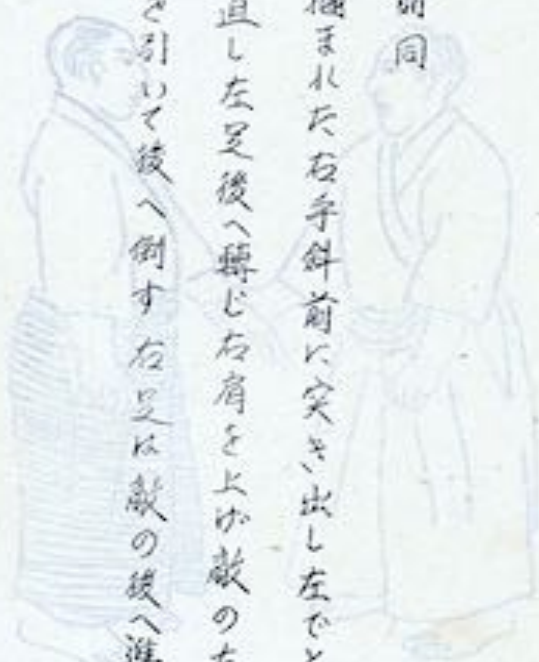 同
掴まれた右手斜前に突き出し左でと
直し左足後へ轉じ右肩を上げ敵の
き引いて後へ倒す右足は敵の後へ進